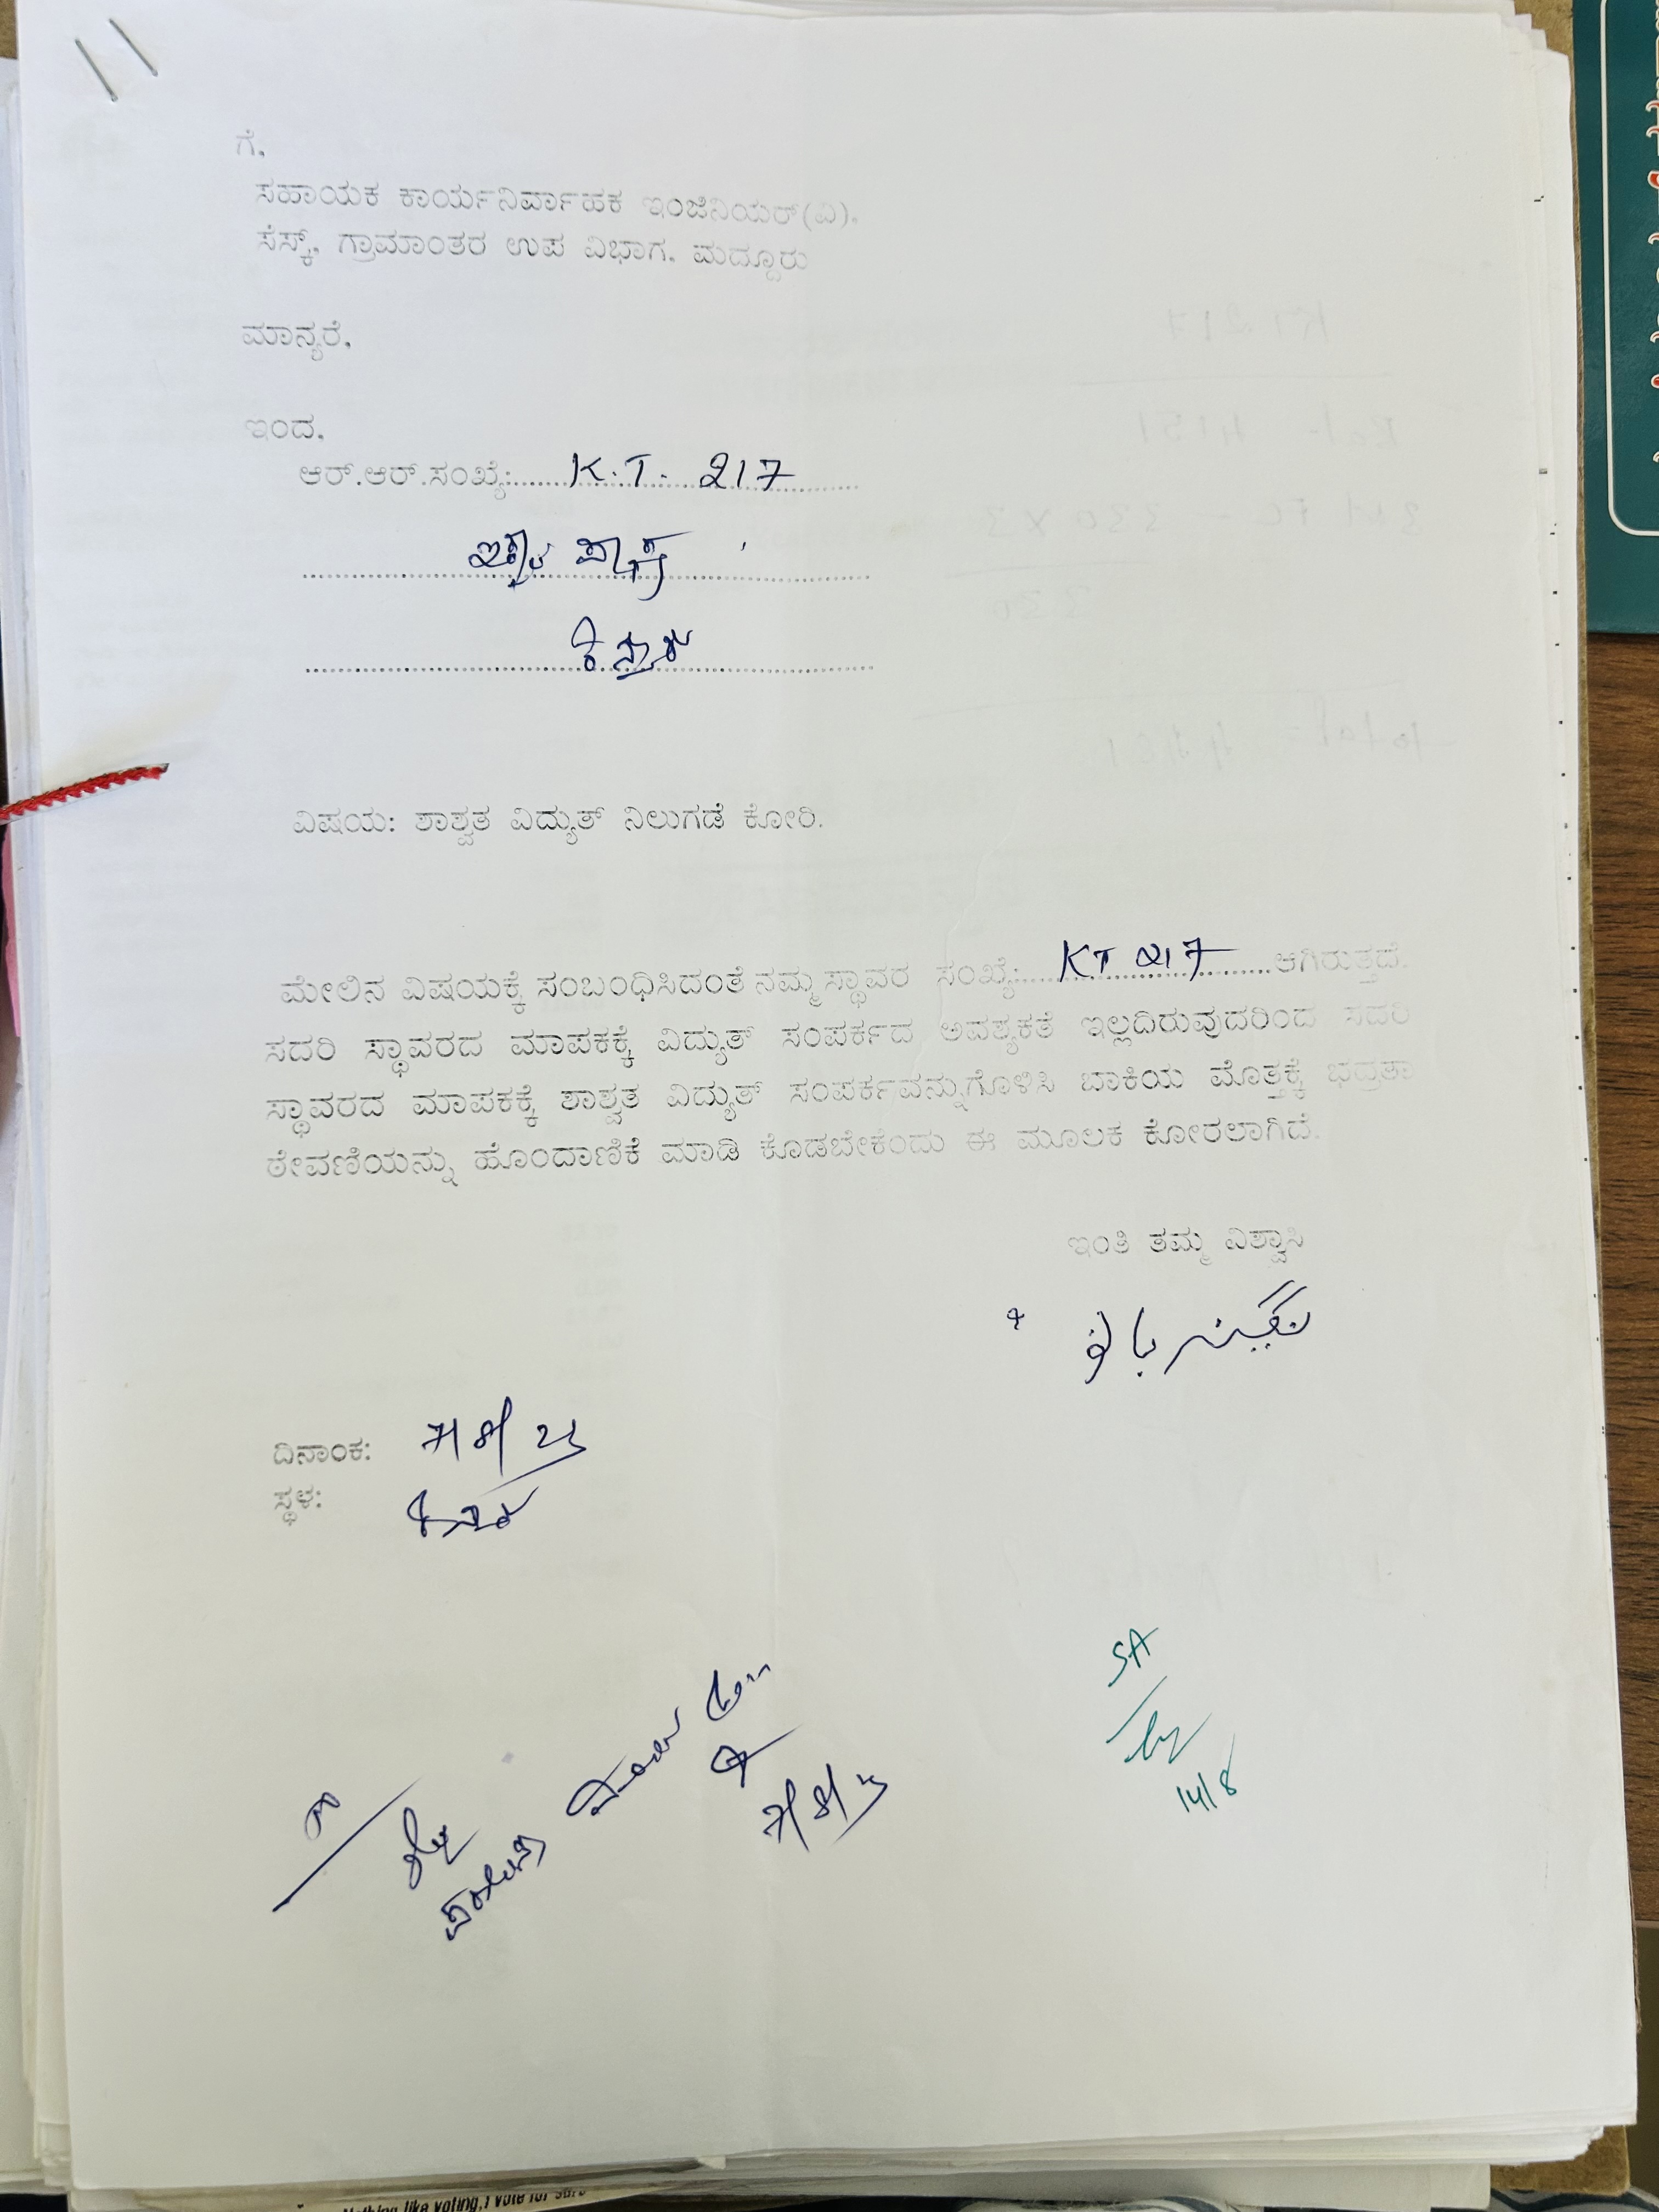 ಗೆ,
ಸಹಾಯಕ ಕಾರ್ಯನಿರ್ವಾಹಕ ಇಂಜಿನಿಯರ್(ವಿ).
ಸೆಸ್ಕ್, ಗ್ರಾಮಾಂತರ ಉಪ ವಿಭಾಗ, ಮದ್ದೂರು
ಮಾನ್ಯರೆ,
ಇಂದ,
ಆರ್.ಆರ್.ಸಂಖ್ಯೆ:...... K.T. 217
ವಿಷಯ: ಶಾಶ್ವತ ವಿದ್ಯುತ್ ನಿಲುಗಡೆ ಕೋರಿ.
ಮೇಲಿನ ವಿಷಯಕ್ಕೆ ಸಂಬಂಧಿಸಿದಂತೆ ನಮ್ಮ ಸ್ಥಾವರ ಸಂಖ್ಯೆ:..... KT 217 .......ಆಗಿರುತ್ತದೆ.
ಸದರಿ ಸ್ಥಾವರದ ಮಾಪಕಕ್ಕೆ ವಿದ್ಯುತ್ ಸಂಪರ್ಕದ ಅವಶ್ಯಕತೆ ಇಲ್ಲದಿರುವುದರಿಂದ ಸದರಿ
ಸ್ಥಾವರದ ಮಾಪಕಕ್ಕೆ ಶಾಶ್ವತ ವಿದ್ಯುತ್ ಸಂಪರ್ಕವನ್ನುಗೊಳಿಸಿ ಬಾಕಿಯ ಮೊತ್ತಕ್ಕೆ ಭದ್ರತಾ
ಠೇವಣಿಯನ್ನು ಹೊಂದಾಣಿಕೆ ಮಾಡಿ ಕೊಡಬೇಕೆಂದು ಈ ಮೂಲಕ ಕೋರಲಾಗಿದೆ.
ಇಂತಿ ತಮ್ಮ ವಿಶ್ವಾಸಿ
نگینہ بانو
ದಿನಾಂಕ: 7/8/25
ಸ್ಥಳ:
7/8/25
SA
14/8
Nothing like voting, I vote for sure